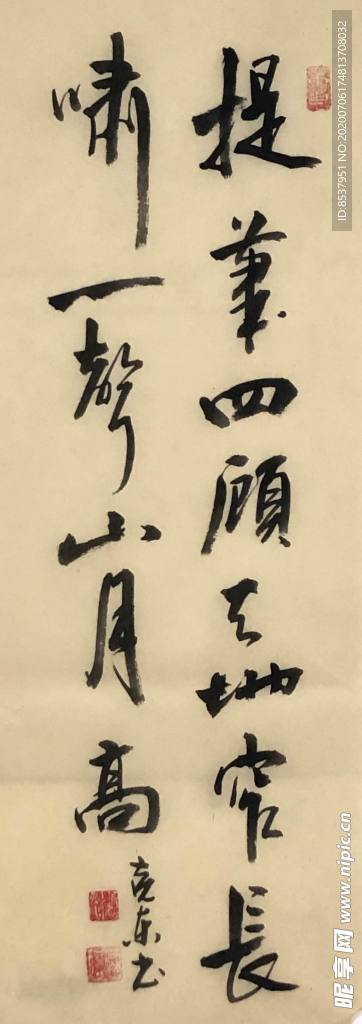 提筆四顧天地窄長
嘯一聲山月高
克東书
ID:8537951 NO:20200706174813708032
昵享网 www.nipic.cn